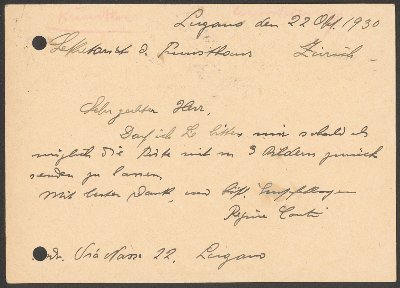 Lugano den 22 Okt. 1930
Sekretariat d. Kunsthaus Zürich
Sehr geehrter Herr,
Darf ich Sie bitten mir sobald als
möglich die Kiste mit den 3 Bildern zurück
senden zu lassen.
Mit bestem Dank, und höfl. Empfehlungen
Regina Conti
Via Nassa 22, Lugano